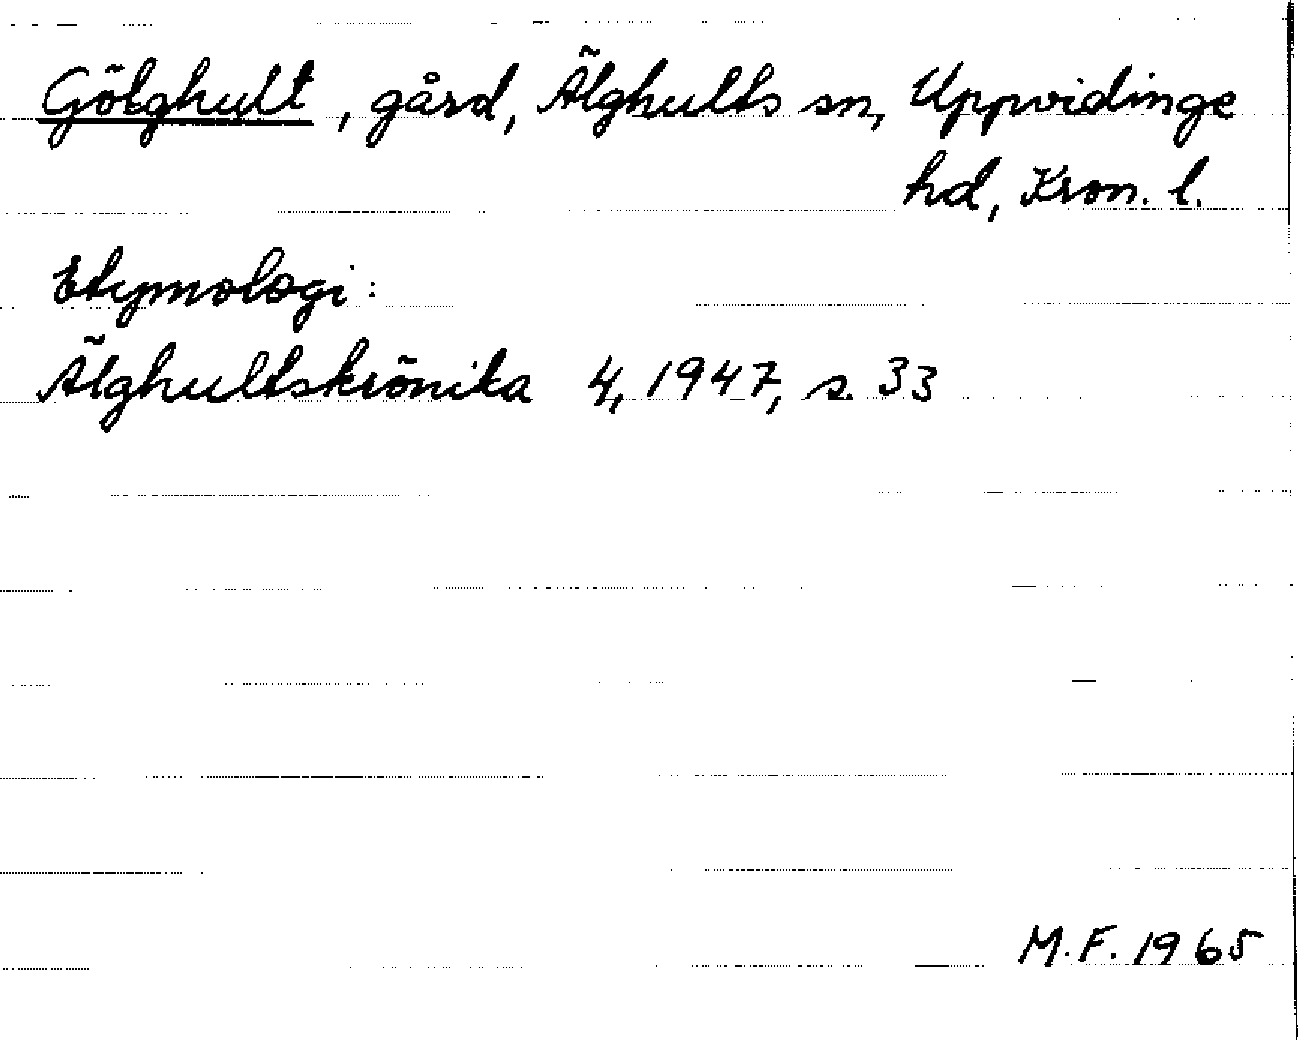 Gölghult, gård, Älghults sn, Uppvidinge
hd, Kron. l.
Etymologi:
Älghultskrönika 4, 1947, s. 33
M.F. 1965